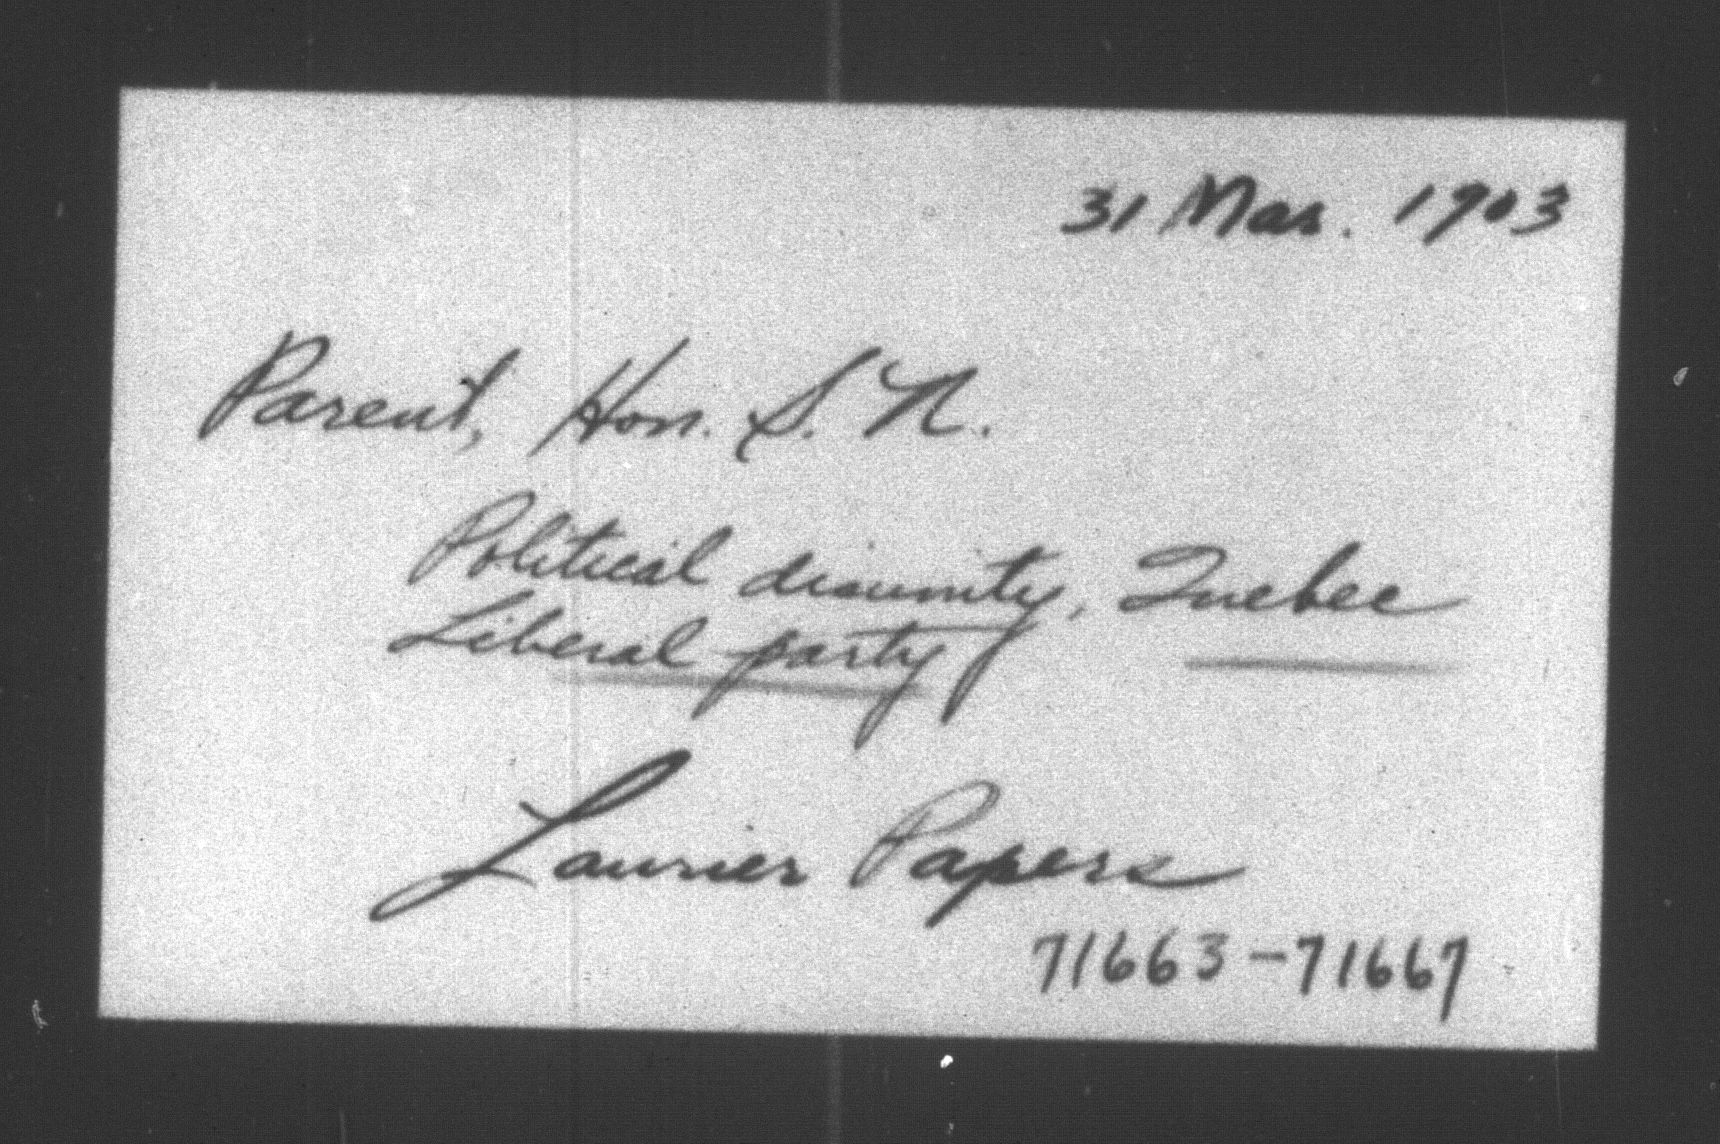 31 Mar. 1903
Parent, Hon. S. N.
Political disunity, Quebec
Liberal party
Laurier Papers
71663-71667